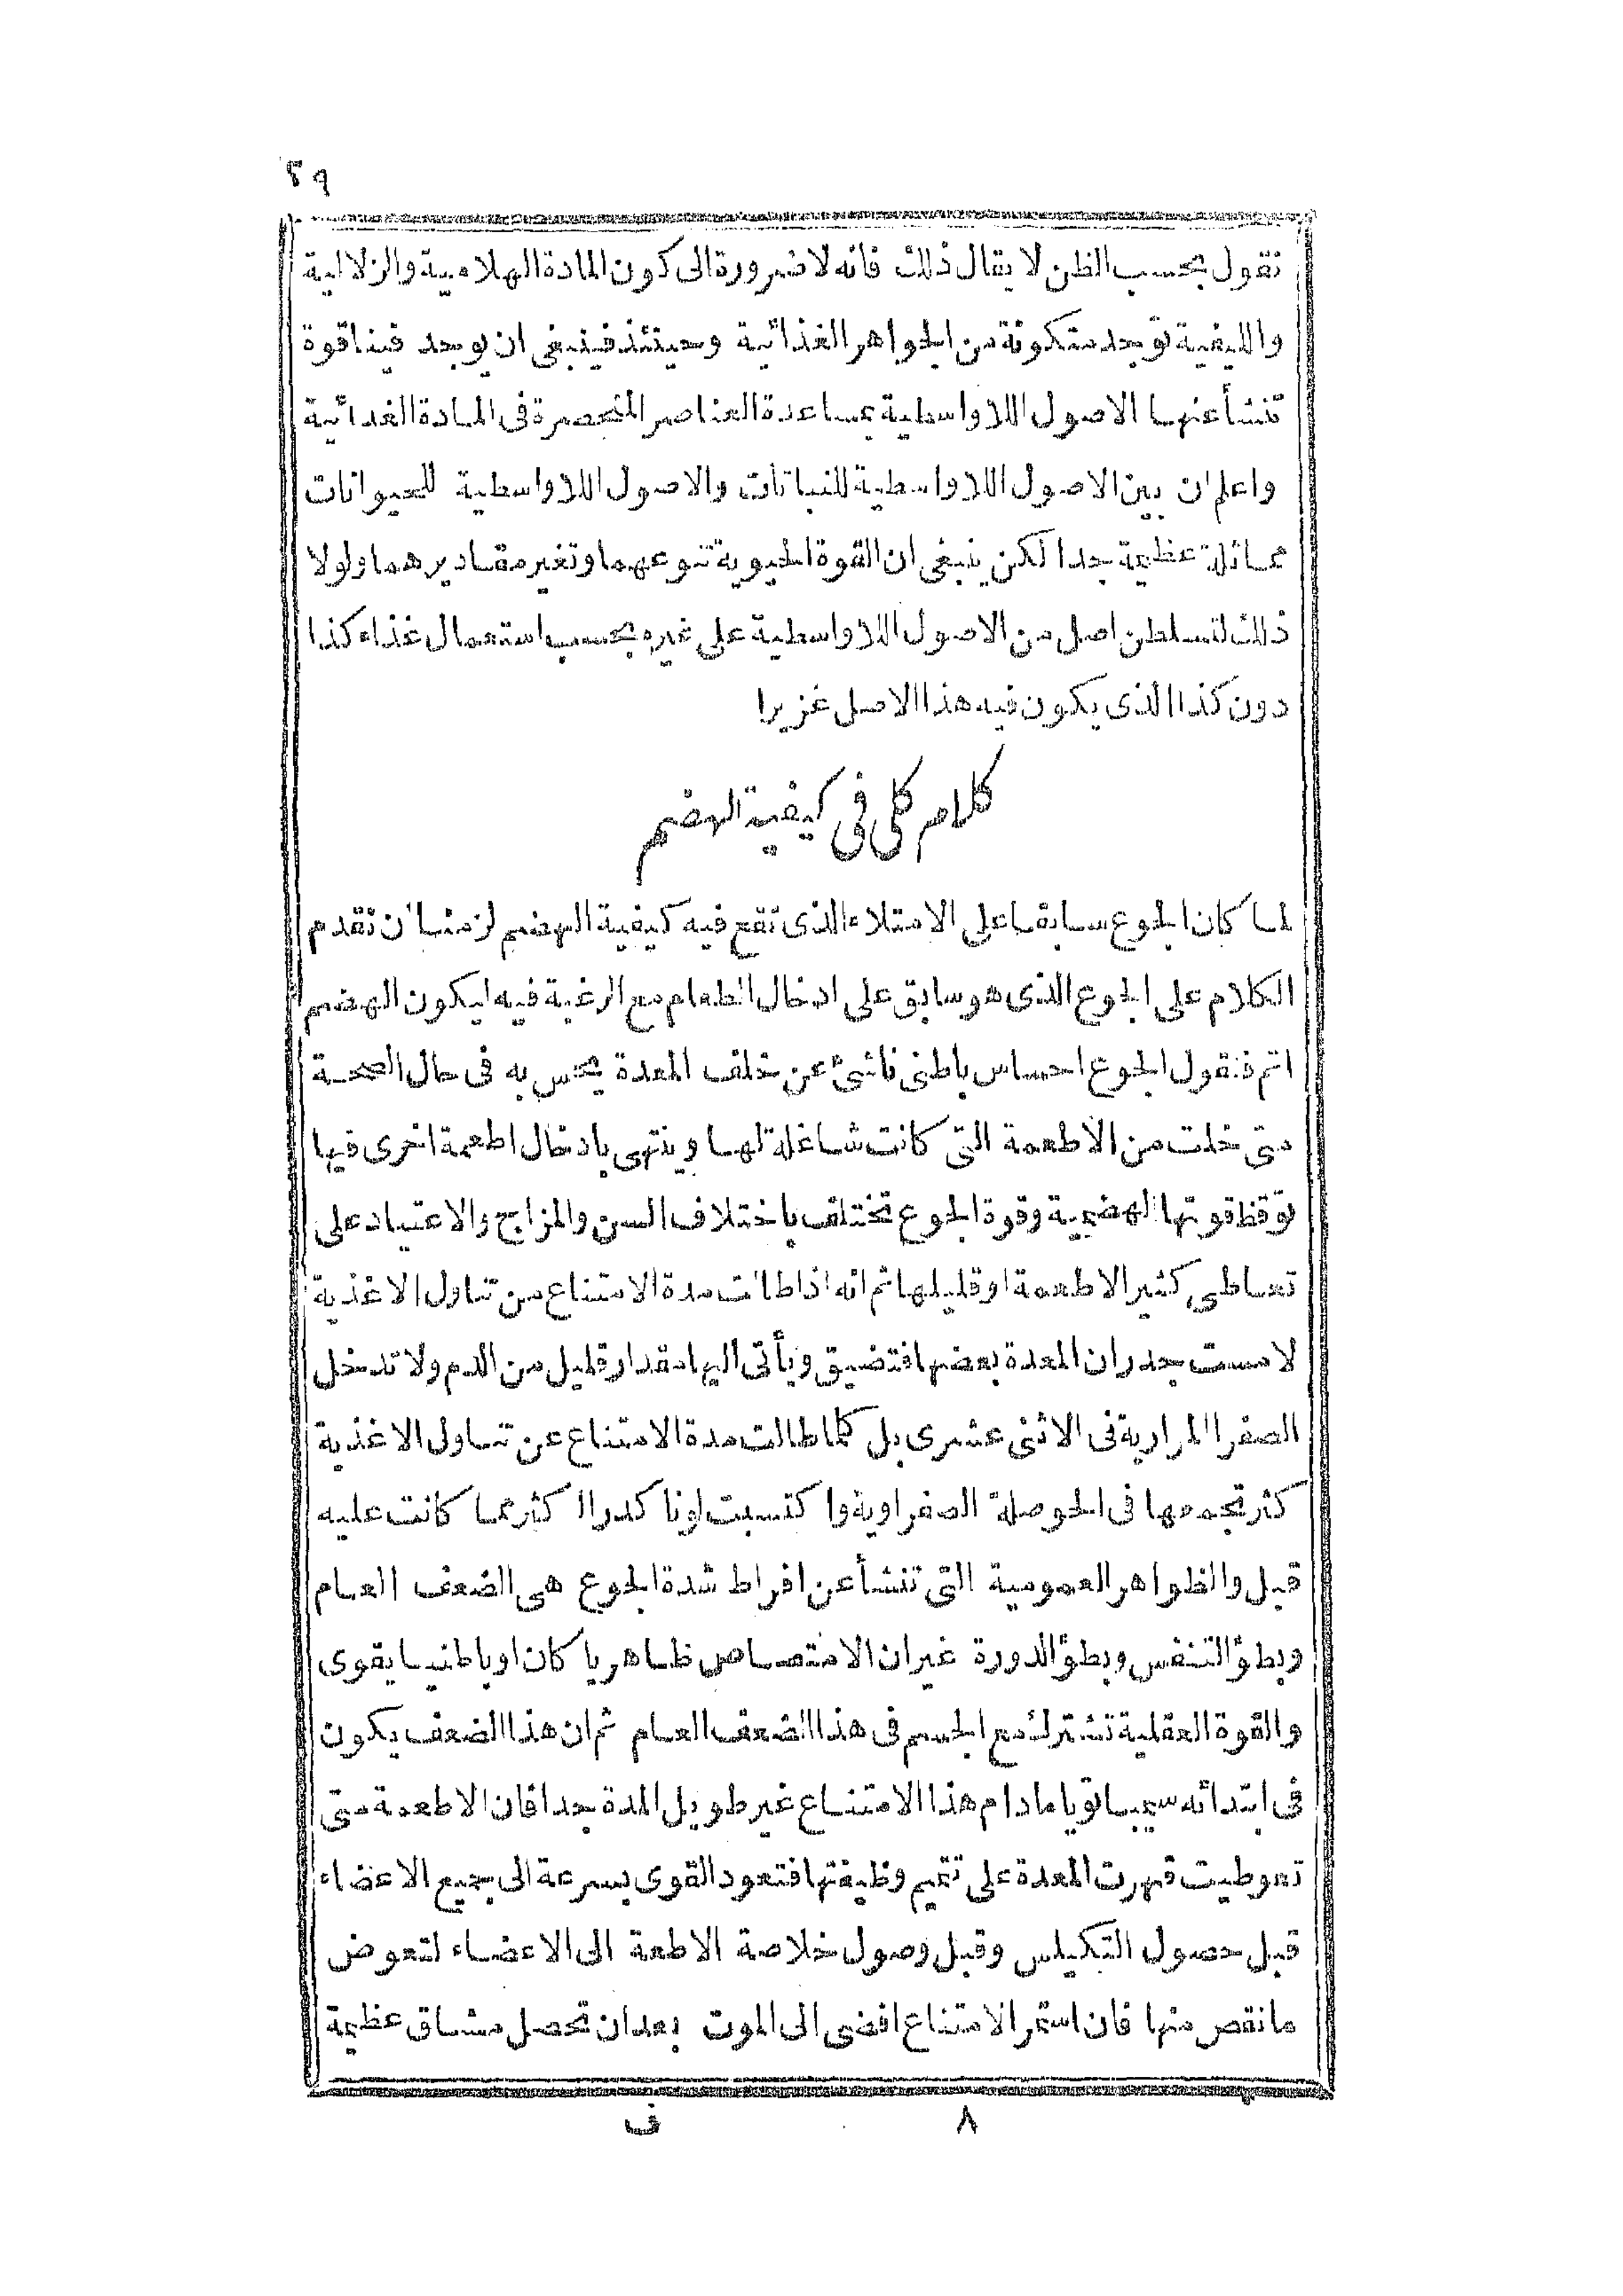 ٢٩
نقول بحسب الظن لا يقال ذلك فانه لا ضرورة الى كون المادة الهلامية والزلالية
والليفية توجد متكونة من الجواهر الغذائية وحينئذ فينبغى ان يوجد فينا قوة
تنشأ عنها الاصول اللاواسطية بمساعدة العناصر المنحصرة فى المادة الغدائية
واعلم ان بين الاصول اللاواسطية للنباتات والاصول اللاواسطية للحيوانات
مماثلة عظيمة جدا لكن ينبغى ان القوة الحيوية تنوعهما وتغير مقاديرهما ولولا
ذلك لتسلطن اصل من الاصول اللاواسطية على غيره بحسب استعمال غذاء كذا
دون كذا الذى يكون فيه هذا الاصل غزيرا
كلام كلى فى كيفية الهضم
لما كان الجوع سابقا على الامتلاء الذى تقع فيه كيفية الهضم لزمنا ان نقدم
الكلام على الجوع الذى هو سابق على ادخال الطعام مع الرغبة فيه ليكون الهضم
اتم فنقول الجوع احساس باطنى ناشئ عن خلف المعدة يحس به فى حال الصحة
متى خلت من الاطعمة التى كانت شاغلة لها وينتهى بادخال اطعمة اخرى فيها
توقظ قوتها الهضمية وقوة الجوع تختلف باختلاف السن والمزاج والاعتياد على
تعاطى كثير الاطعمة او قليلها ثم انه اذا طالت مدة الامتناع من تناول الاغذية
لامست جدران المعدة بعضها فتضيق ويأتى اليها مقدار قليل من الدم ولا تدخل
الصفرا المرارية فى الاثنى عشرى بل كلما طالت مدة الامتناع عن تناول الاغذية
كثر تجمعها فى الحوصلة الصفراوية واكتسبت لونا كدرا اكثر مما كانت عليه
قبل والظواهر العمومية التى تنشأ عن افراط شدة الجوع هى الضعف العام
وبطؤ التنفس وبطؤ الدورة غير ان الامتصاص ظاهريا كان او باطنيا يقوى
والقوة العقلية تشترك مع الجسم فى هذا الضعف العام ثم ان هذا الضعف يكون
فى ابتدائه سيمباتويا مادام هذا الامتناع غير طويل المدة جدا فان الاطعمة متى
تعوطيت قهرت المعدة على تتميم وظيفتها فتعود القوى بسرعة الى جميع الاعضاء
قبل حصول التكيلس وقبل وصول خلاصة الاطعة الى الاعضاء لتعوض
ما نقص منها فان استمر الامتناع افضى الى الموت بعد ان تحصل مشاق عظيمة
٨ ف